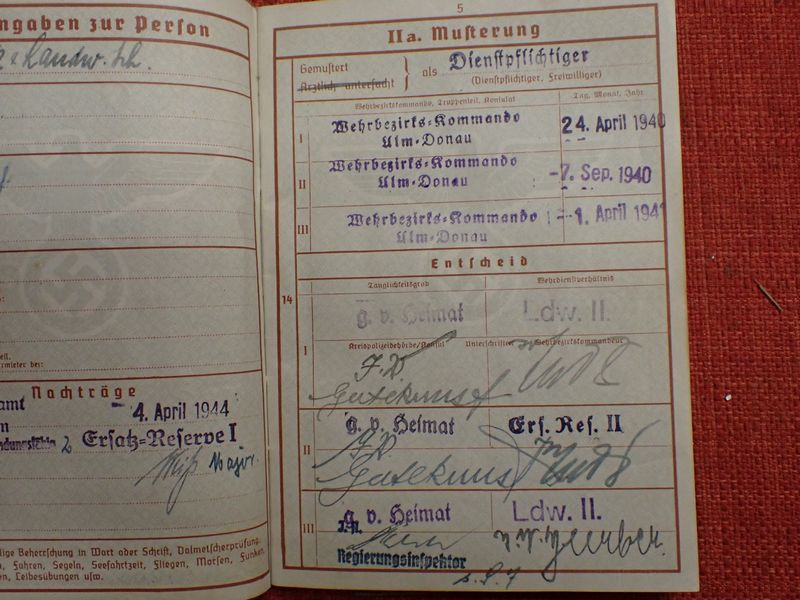 ngaben zur Person
Landw.
Nachträge
amt - 4. April 1944
Ersatz=Reserve I
Major.
lige Beherrschung in Wort oder Schrift, Dolmetscherprüfung.
n, Fahren, Segeln, Seefahrtzeit, Fliegen, Morsen, Funken,
en, Leibesübungen usw.
5
IIa. Musterung
Gemustert
Ärztlich untersucht
als Dienstpflichtiger
(Dienstpflichtiger, Freiwilliger)
Wehrbezirkskommando, Truppenteil, Konsulat Tag, Monat, Jahr
I Wehrbezirks=Kommando 24. April 1940
Ulm=Donau
II Wehrbezirks=Kommando -7. Sep. 1940
Ulm=Donau
III Wehrbezirks=Kommando - 1. April 1941
Ulm=Donau
Entscheid
14
Tauglichkeitsgrad Wehrdienstverhältnis
g. v. Heimat Ldw. II.
I Kreispolizeibehörde/Konsul Unterschriften Wehrbezirkskommandeur
Gutekunst
II g. v. Heimat Ers. Res. II
Gutekunst
III g. v. Heimat Ldw. II.
Regierungsinspektor